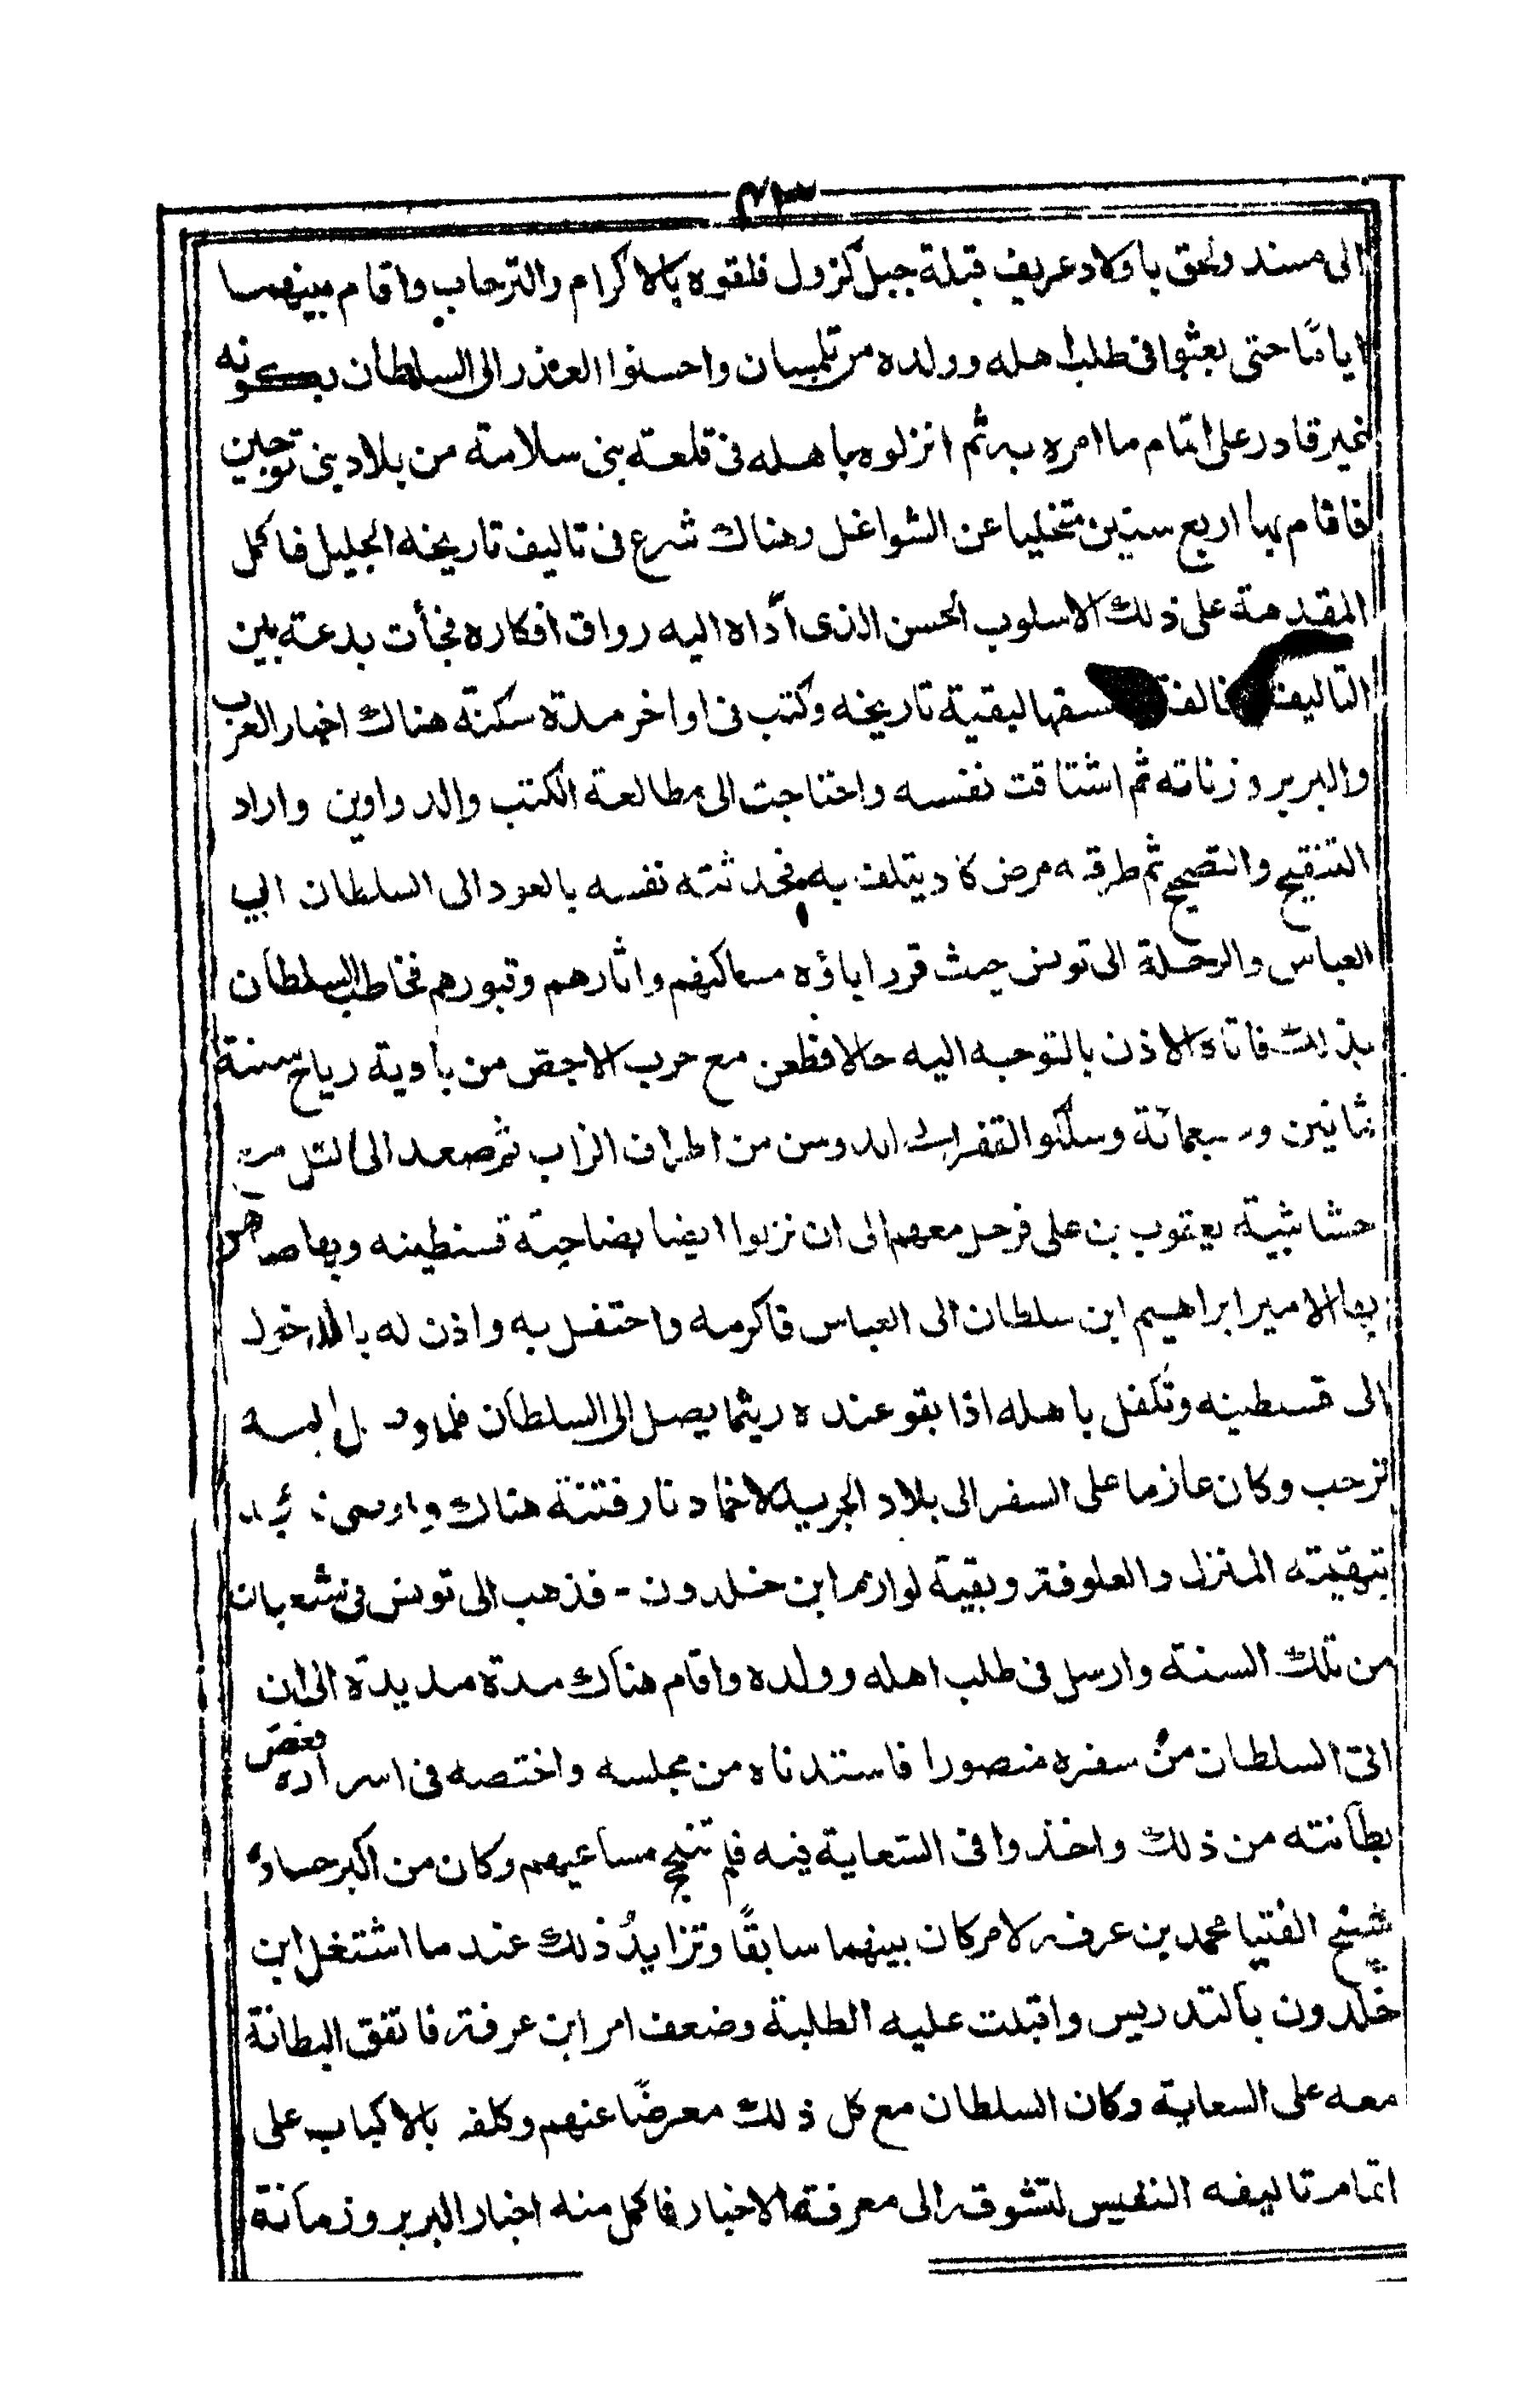 ٤٣
الى مسند ولحق باولاد عريف قبلة جبل كزول فلقوه بالاكرام والترحاب واقام بينهما
اياما حتى بعثوا فى طلب اهله وولده من تلمسان واحسنوا العذر الى السلطان بكونه
غير قادر على اتمام ما امره به ثم انزلوه باهله فى قلعة بنى سلامة من بلاد بنى توجين
فاقام بها اربع سنين متخليا عن الشواغل وهناك شرع فى تاليف تاريخه الجليل فاكمل
المقدمة على ذلك الاسلوب الحسن الذى ادّاه اليه رواق افكاره فجأت بدعة بين
التاليف لبقية تاريخه وكتب فى اواخر مدة سكنة هناك اخبار العرب
والبربر وزناته ثم اشتاقت نفسه واحتاجت الى مطالعة الكتب والدواوين واراد
التنقيح والتصحيح ثم طرقه مرض كاد يتلف به فحدثته نفسه بالعود الى السلطان ابي
العباس والرحلة الى تونس حيث قرر اباؤه مساكنهم واثارهم وقبورهم فخاطب السلطان
بذلك فاتاه الاذن بالتوجه اليه حالا فظعن مع حرب الاجص من بادية رياح سنة
ثمانين وسبعمائة وسلكو القفر الدوسن من اطراف الزاب ثم صعد الى التل من
حشاشية يعقوب بن على فرحل معهم الى ان نزلوا ايضا بضاحية قسنطينه وبها
بها الامير ابراهيم ابن سلطان الى العباس فاكرمه واحتفل به واذن له بالدخول
الى قسطنيه وتكفل باهله اذا بقو عنده ريثما يصل الى السلطان فلما اليه
ترحب وكان عازما على السفر الى بلاد الجريد لاخماد نار فتنة هناك
بتهيئته المنزل والعلوفة وبقية لوازم ابن خلدون - فذهب الى تونس فى شعبان
من تلك السنة وارسل فى طلب اهله وولده واقام هناك مدة مديدة الى ان
اتى السلطان من سفره منصورا فاستدناه من مجلسه واختصه فى اسراره فغص
بطانته من ذلك واخذوا فى السّعاية فيه فلم تنجح مساعيهم وكان من اكبر حساده
شيخ الفتيا محمد بن عرفه لامر كان بينهما سابقًا وتزايدُ ذلك عند ما اشتغل ابن
خلدون بالتدريس واقبلت عليه الطلبة وضعف امر ابن عرفة فاتفق البطانة
معه على السعاية وكان السلطان مع كل ذلك معرضًا عنهم وكلفه بالاكباب على
اتمام تاليفه النفيس لتشوقه الى معرفة الاخبار فاكمل منه اخبار البربر وزمانة